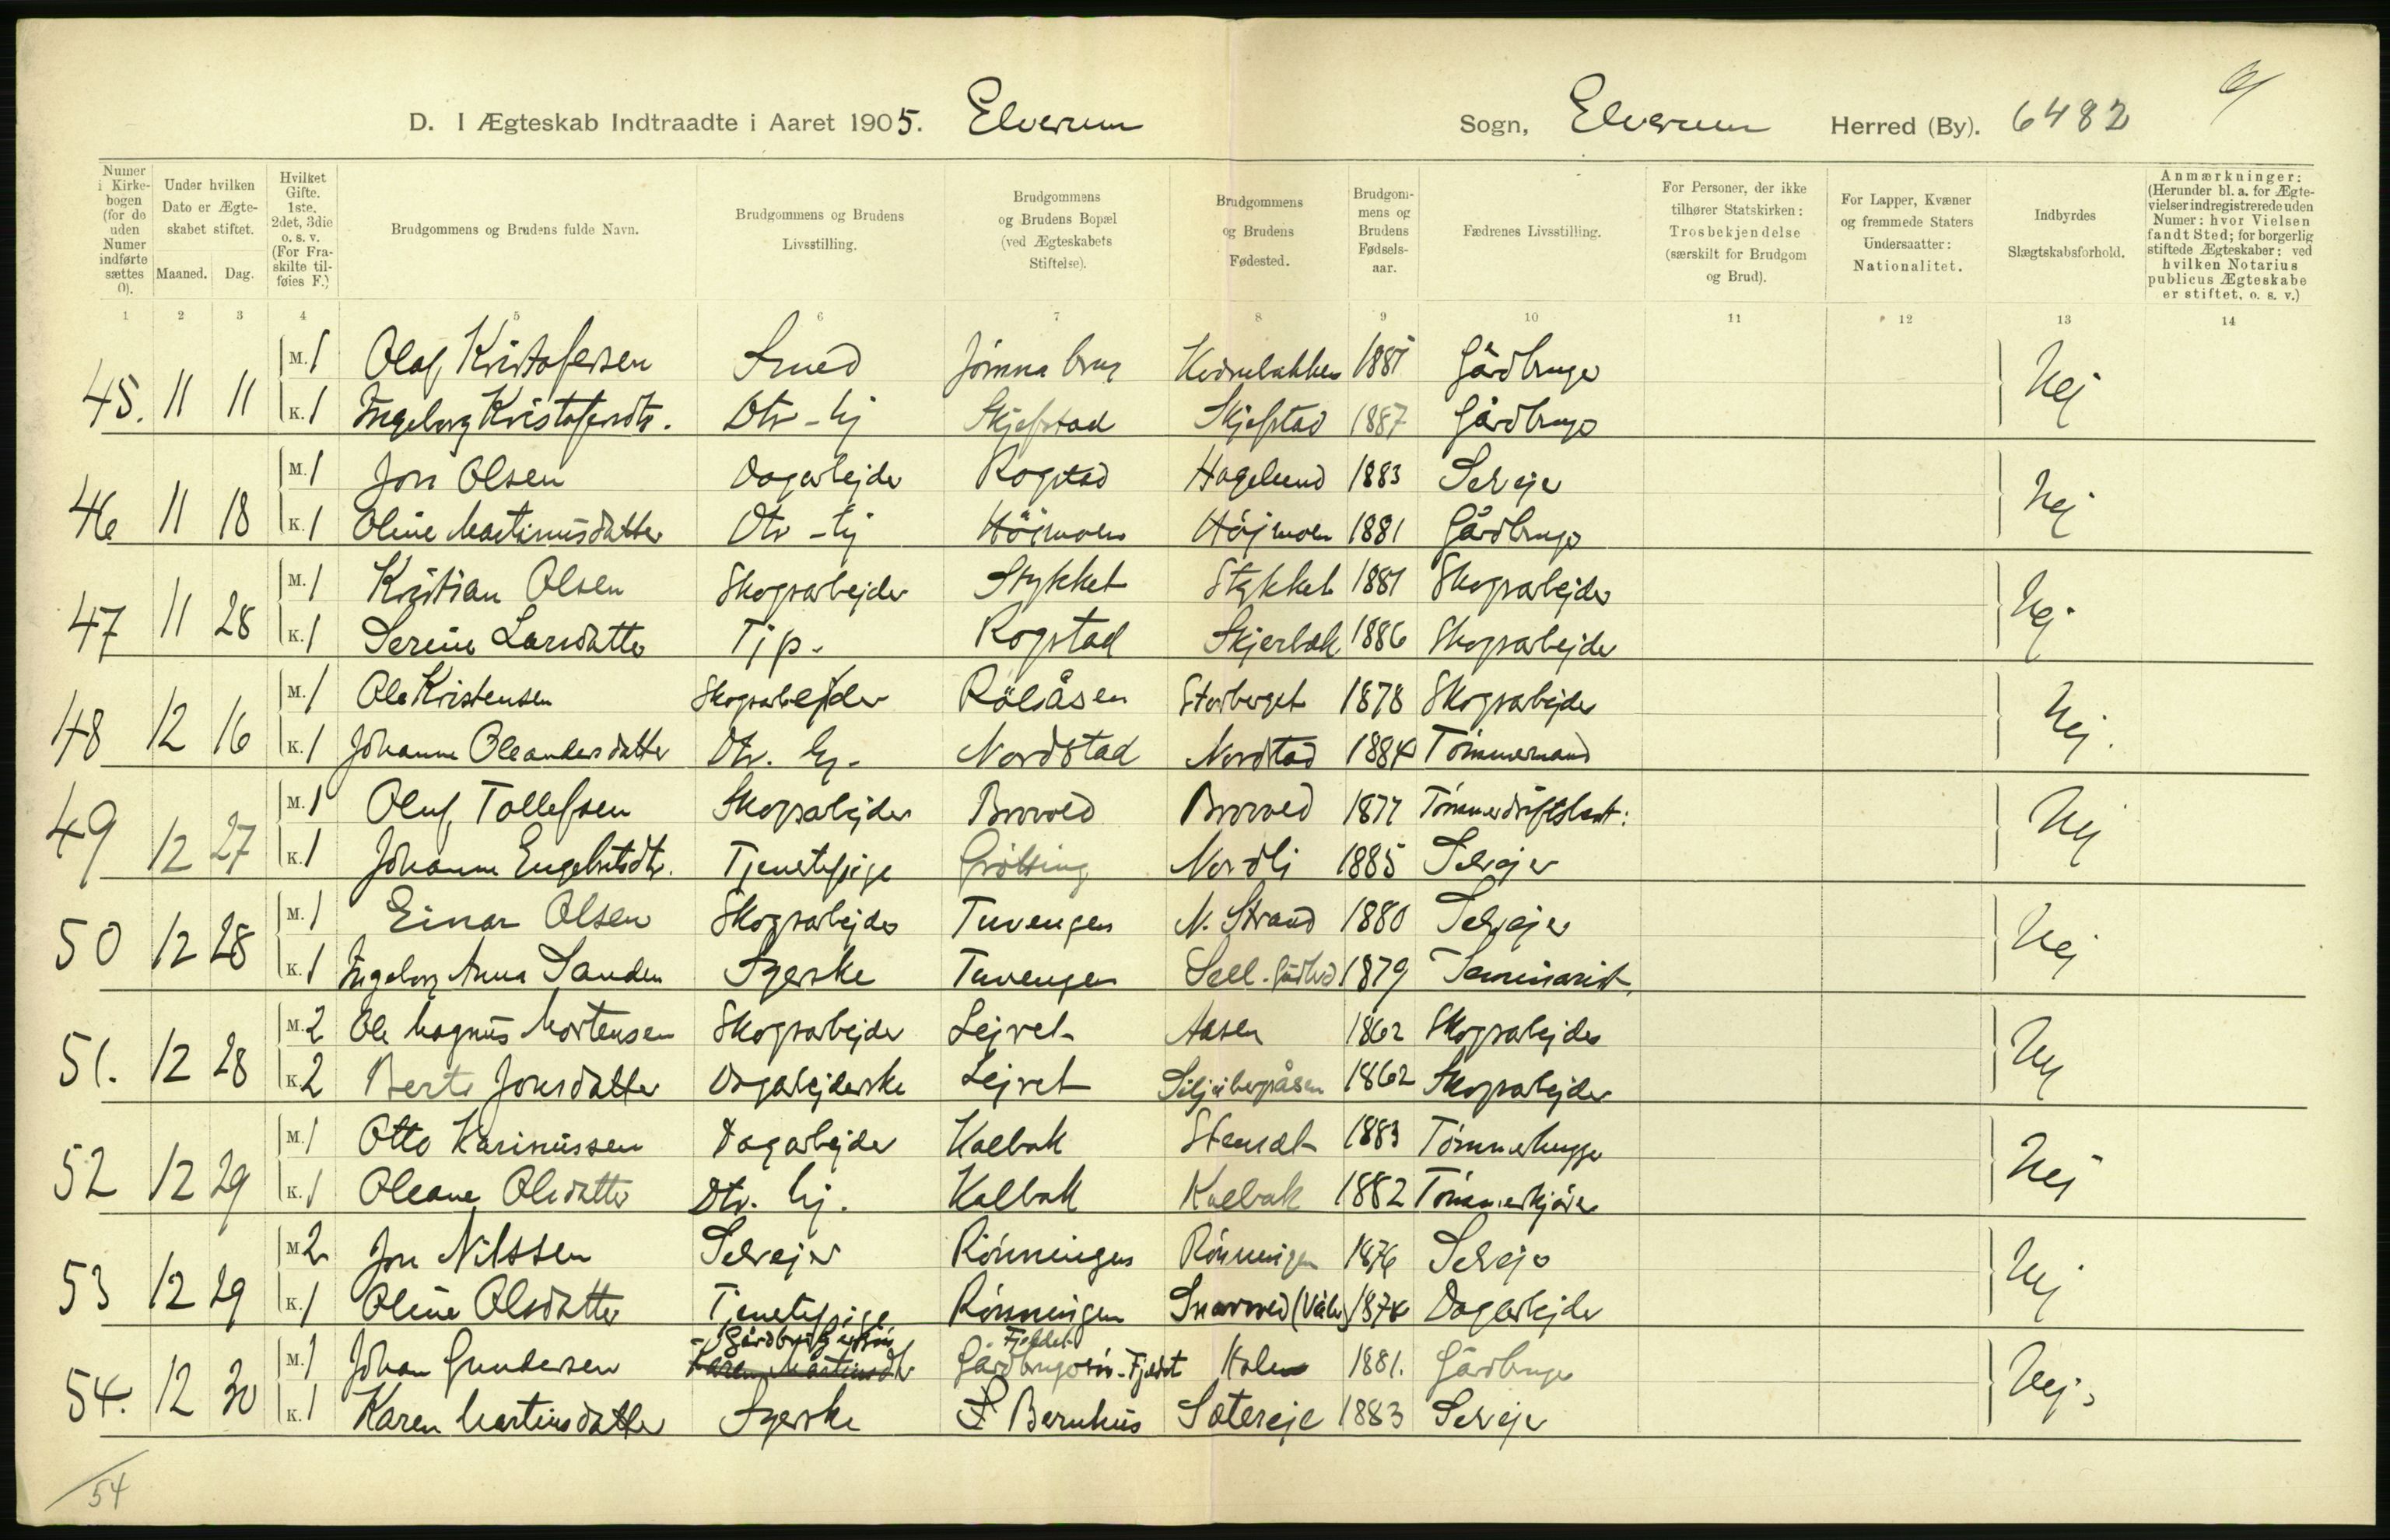 9
D. I Ægteskab Indtraadte i Aaret 1905. Elverum Sogn, Elverum Herred (By). 6482
Numer i Kirke-bogen (for de uden Numer indførte sættes 0).
Under hvilken Dato er Ægte-skabet stiftet.
Maaned. Dag.
Hvilket Gifte. 1ste, 2det, 3die o. s. v. (For Fra-skilte til-føies F.)
Brudgommens og Brudens fulde Navn.
Brudgommens og Brudens Livsstilling.
Brudgommens og Brudens Bopæl (ved Ægteskabets Stiftelse).
Brudgommens og Brudens Fødested.
Brudgom-mens og Brudens Fødsels-aar.
Fædrenes Livsstilling.
For Personer, der ikke tilhører Statskirken: Trosbekjendelse (særskilt for Brudgom og Brud).
For Lapper, Kvæner og fremmede Staters Undersaatter: Nationalitet.
Indbyrdes Slægtskabsforhold.
Anmærkninger: (Herunder bl. a. for Ægte-vielser indregistrerede uden Numer: hvor Vielsen fandt Sted; for borgerlig stiftede Ægteskaber: ved hvilken Notarius publicus Ægteskabe er stiftet, o. s. v.)
1 2 3 4 5 6 7 8 9 10 11 12 13 14
45. 11 11 M. 1 Olaf Kristofersen Smed Jømna brug 1881 Gårdbruger Nej
K. 1 Ingeborg Kristofersdtr. Dtr - hj Skjefstad Skjefstad 1887 Gårdbruger
46 11 18 M. 1 Jon Olsen Dagarbejder Rogstad Hagelund 1883 Selvejer Nej
K. 1 Oline Martinusdatter Dtr - hj Höjmoen Höjmoen 1881 Gårdbruger
47 11 28 M. 1 Kristian Olsen Skogsarbejder Stykket Stykket 1881 Skogsarbejder Nej
K. 1 Serine Larsdatter Tjp. Rogstad Skjerbæk 1886 Skogsarbejder
48 12 16 M. 1 Ole Kristensen Skogsarbejder Rölsåsen Storberget 1878 Skogsarbejder Nej.
K. 1 Johanne Oleandersdatter Dtr. hj. Nordstad Nordstad 1884 Tömmermand
49 12 27 M. 1 Oluf Tollefsen Skogsarbejder 1877 Nej
K. 1 Johanne Engebretsdtr. Tjenestepige Grötting Nordli 1885 Selvejer
50 12 28 M. 1 Einar Olsen Skogsarbejder Tuvengen N. Strand 1880 Selvejer Nej
K. 1 Ingeborg Anna Sanden Syerske Tuvengen 1879 Seminarist
51. 12 28 M. 2 Ole Magnus Mortensen Skogsarbejder Lejret Aasen 1862 Skogsarbejder Nej
K. 2 Berte Jonsdatter Dagarbejderske Lejret Siljubergsåsen 1862 Skogsarbejder
52 12 29 M. 1 Otto Karinussen Dagarbejder Kalbak 1883 Tömmerhugger Nej
K. 1 Oleane Olsdatter Dtr. hj. Kalbak Kalbak 1882 Tömmerkjörer
53 12 29 M. 2 Jon Nilssen Selvejer Rönningen Rönningen 1876 Selvejer Nej
K. 1 Oline Olsdatter Tjenestepige Rönningen Snarved (Våler) 1874 Dagarbejder
Gårdbrugersön Fjeldet
54. 12 30 M. 1 Johan Gundersen Karen Martinsdtr Gårdbrugersön - Fjeldet Holen 1881. Gårdbruger Nej
K. 1 Karen Martinsdatter Syerske Bernhus Sætereje 1883 Selvejer
54